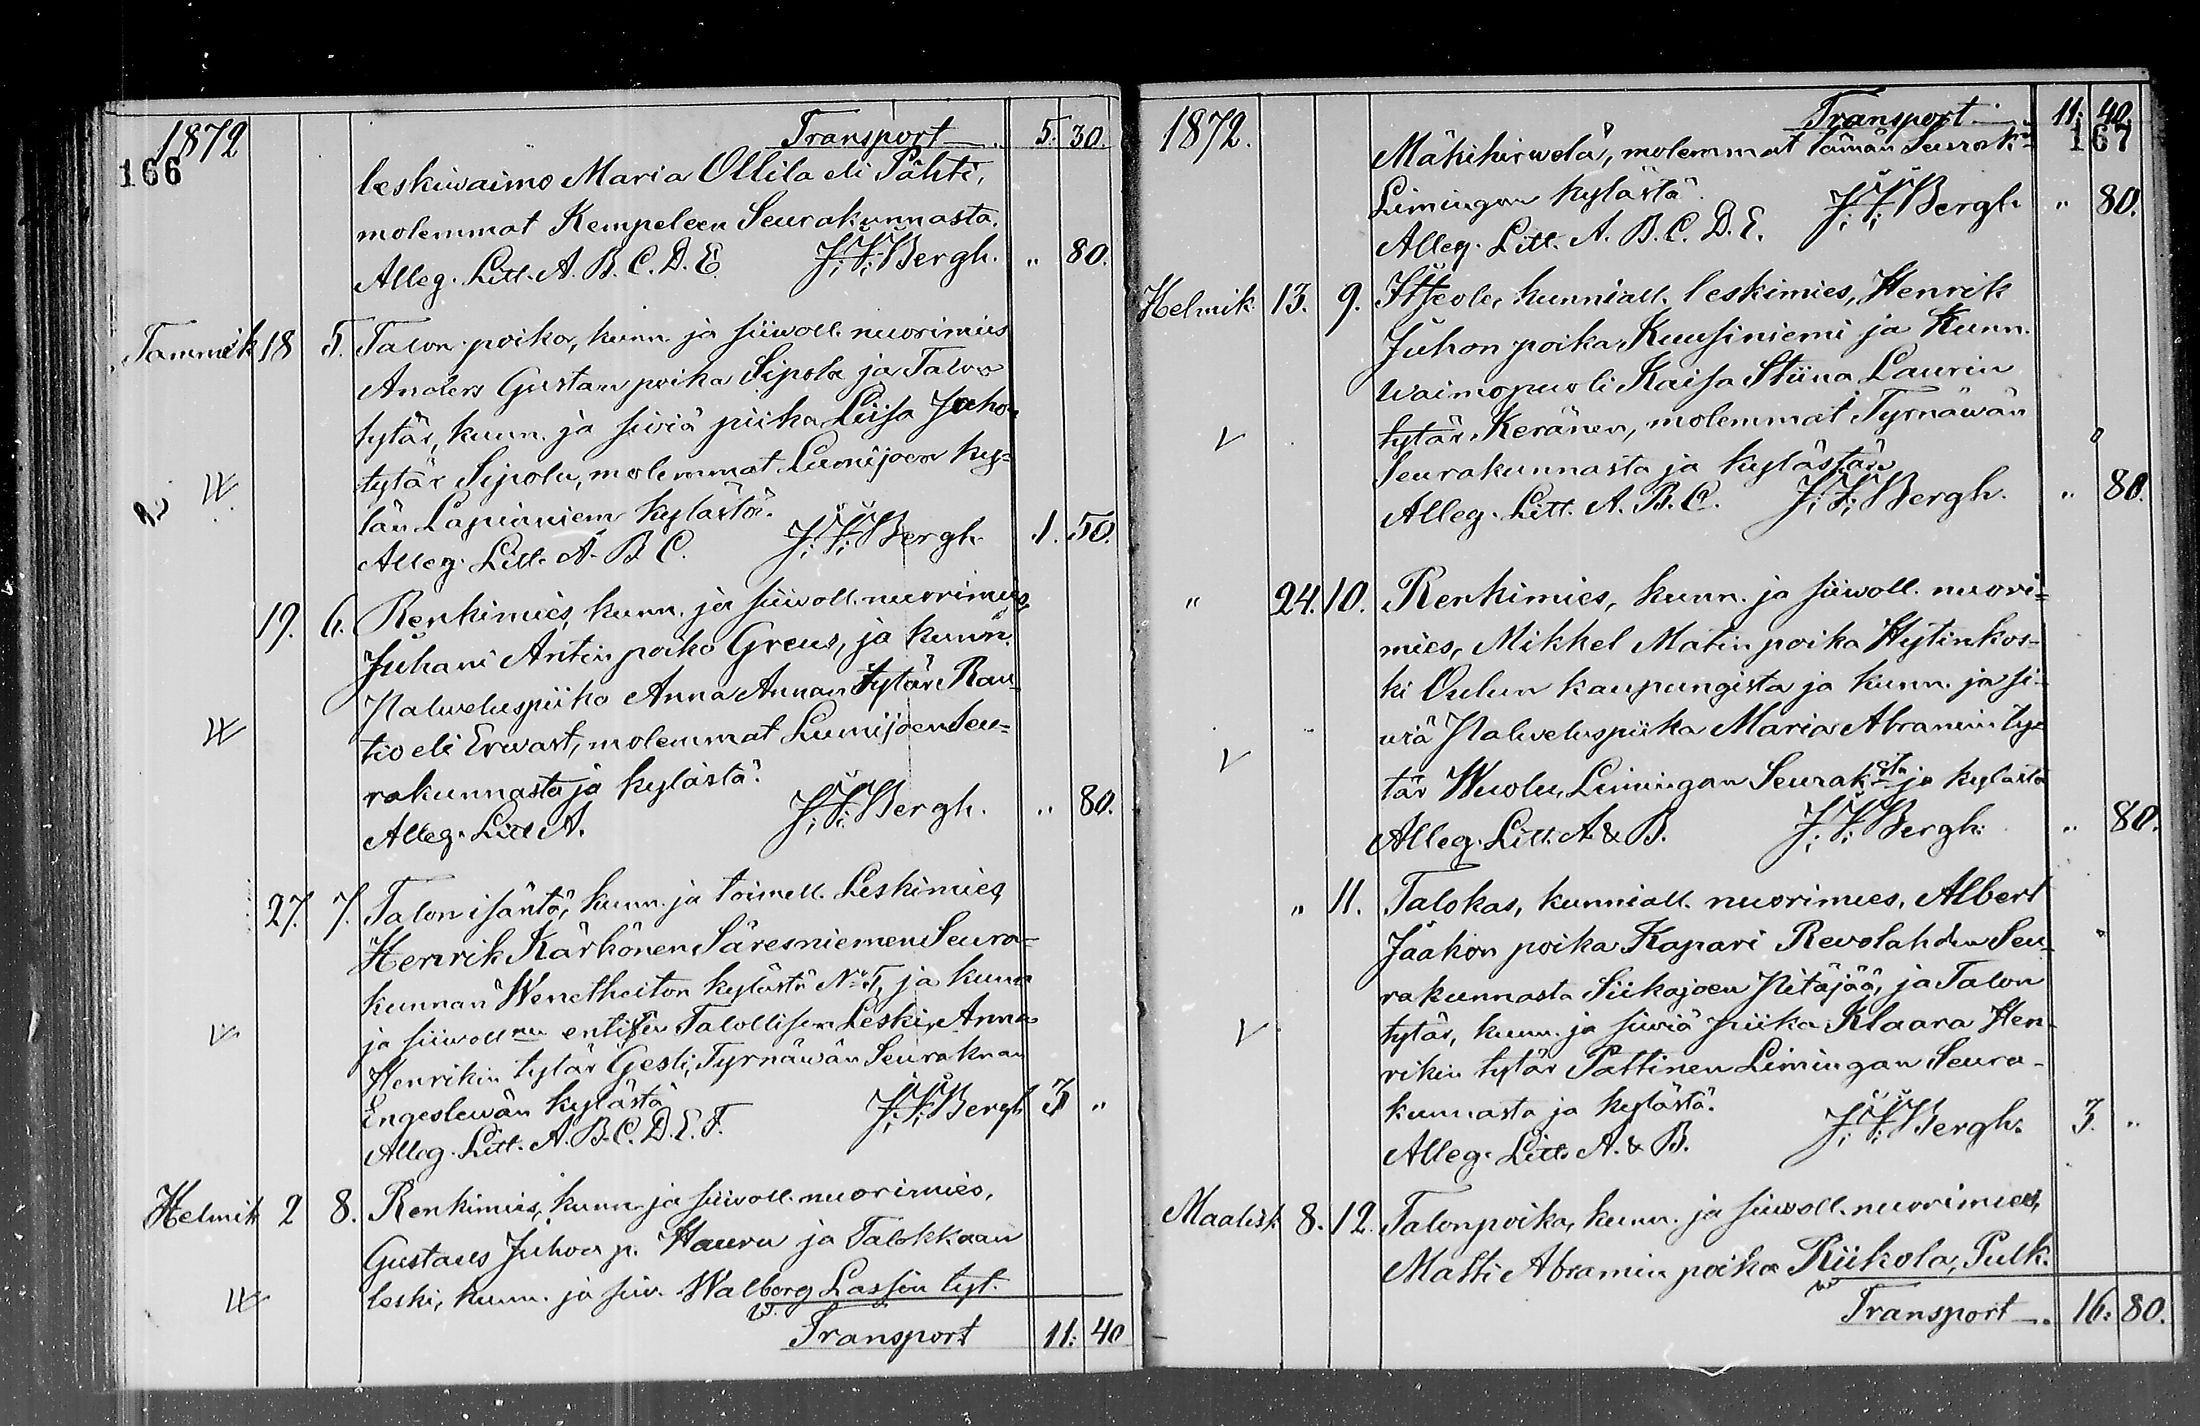 1872 Transport 5. 30.
166
leskiwaimo Maria Ollila eli Pähti,
molemmat Kempeleen Seurakunnasta.
Alleg. Litt. A. B. C. D. E. J. F. Bergh. " 80.
Tammik 18 5. Talon poika, kunn. ja siiwoll. nuorimies
Anders Gustaw poika Sipola ja Talon
tytär, kunn. ja siwiä piika Liisa Juhon
tytär Sipola, molemmat Lumijoen ky-
län Lapinniem kylästä.
Alleg. Litt. A. B C. J. F. Bergh 1. 50.
19. 6. Renkimies, kunn. ja siiwoll. nuorimies,
Juhani Antin poika Greus, ja kunn.
Palweluspiika Anna Annan tytär Rau-
tio eli Erwast, molemmat Lumijoen Seu-
rakunnasta ja kylästä.
Alleg. Litt A. J. F. Bergh. " 80.
27. 7. Talon isäntä, kunn. ja toimell. Leskimies
Henrik Kärkönen Säresniemen Seura-
kunnan Wenetheiton kylästä No 5, ja kunn
ja siiwoll entisen Talollisen Leski, Anna
Henrikin tytär Gesti, Tyrnäwän Seuraknan
Engeslewän kylästä
Alleg. Litt. A. B. C. D. E. F. J. F. Bergh 3 "
Helmik 2 8. Renkimies, kunn. ja siiwoll. nuorimies,
Gustaws Juhon p. Hauru ja Talokkaan
leski, kunn. ja siw. Walborg Lassin tyt.
w. Transport 11: 40
1872. Transport 11: 40.
167
Mäkihirwelä, molemmat tämän Seurak
Limingan kylästä.
Alleg. Litt. A. B. C. D. E. J. F. Bergh " 80.
Helmik. 13. 9. Itseole, kunniall. leskimies, Henrik
Juhon poika Kuusiniemi ja Kunn.
waimopuoli Kaisa Stiina Laurin
tytär Keränen, molemmat Tyrnäwän
Seurakunnasta ja kylästä
Alleg. Litt. A. B. C. J. F. Bergh. " 80.
" 24. 10. Renkimies, kunn. ja siiwoll. nuori-
mies, Mikkel Matin poika Hytinkos-
ki Oulun kaupungista ja kunn. ja si-
wiä Palweluspiika Maria Abramin ty-
tär Wuolu, Limingan Seurak sta ja kylästä
Alleg. Litt. A & B. J. F. Bergh. " 80.
" 11. Talokas, kunniall. nuorimies, Albert
Jaakon poika Kapari Revolahden Seu-
rakunnasta Siikajoen Pitäjää, ja Talon
tytär, kunn. ja siwiä piika Klaara Hen-
rikin tytär Pattinen Limingan Seura-
kunnasta ja kylästä.
Alleg. Litt. A. & B. J. F. Bergh. 3. "
Maalisk 8. 12. Talonpoika, kunn. ja siiwoll. nuorimies,
Matti Abramin poika Riikola, Pulk.
w Transport 16: 80.